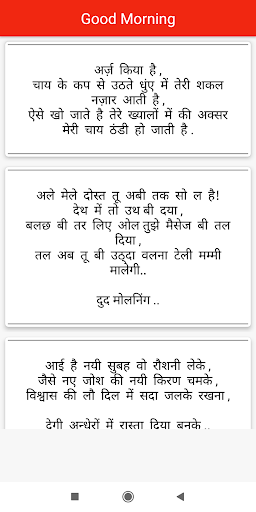 Good Morning
अर्ज़ किया है ,
चाय के कप से उठते धुंए में तेरी शकल
नज़ार आती है ,
ऐसे खो जाते है तेरे ख्यालों में की अक्सर
मेरी चाय ठंडी हो जाती है .
अले मेले दोस्त तू अबी तक सो ल है!
देथ में तो उथ बी दया ,
बलछ बी तर लिए ओल तुझे मैसेज बी तल
दिया ,
तल अब तू बी उठ्दा वलना टेली मम्मी
मालेगी..
दुद मोलनिंग ..
आई है नयी सुबह वो रौशनी लेके ,
जैसे नए जोश की नयी किरण चमके ,
विश्वास की लौ दिल में सदा जलके रखना ,
देगी अन्धेरों में रास्ता दिया बनके ..